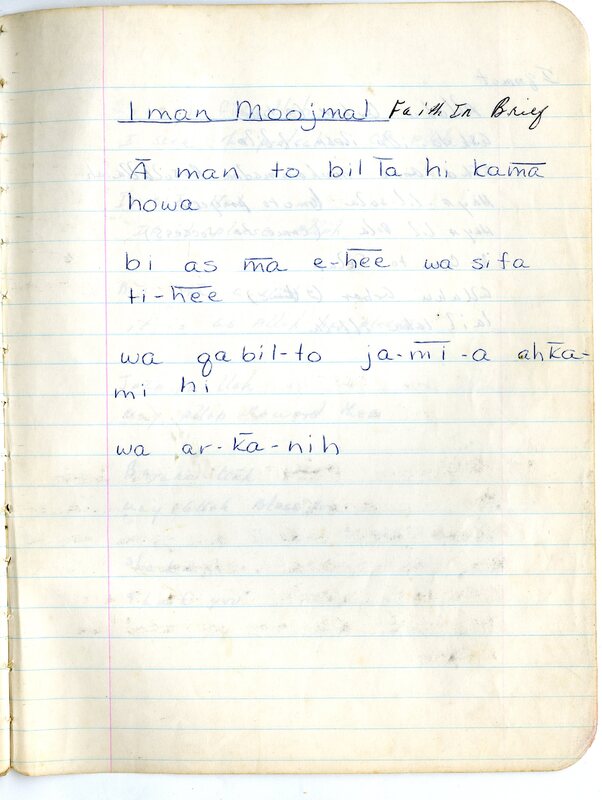 Iman Moojmal Faith In Brief
Ā man to bil l̄a hi kam̄a
howa
bi as m̄a e-h̄ēē wa sifa
ti-h̄ēē
wa qabil-to ja-m̄ī-a ahk̄a-
mi hi
wa ar-k̄a-nih